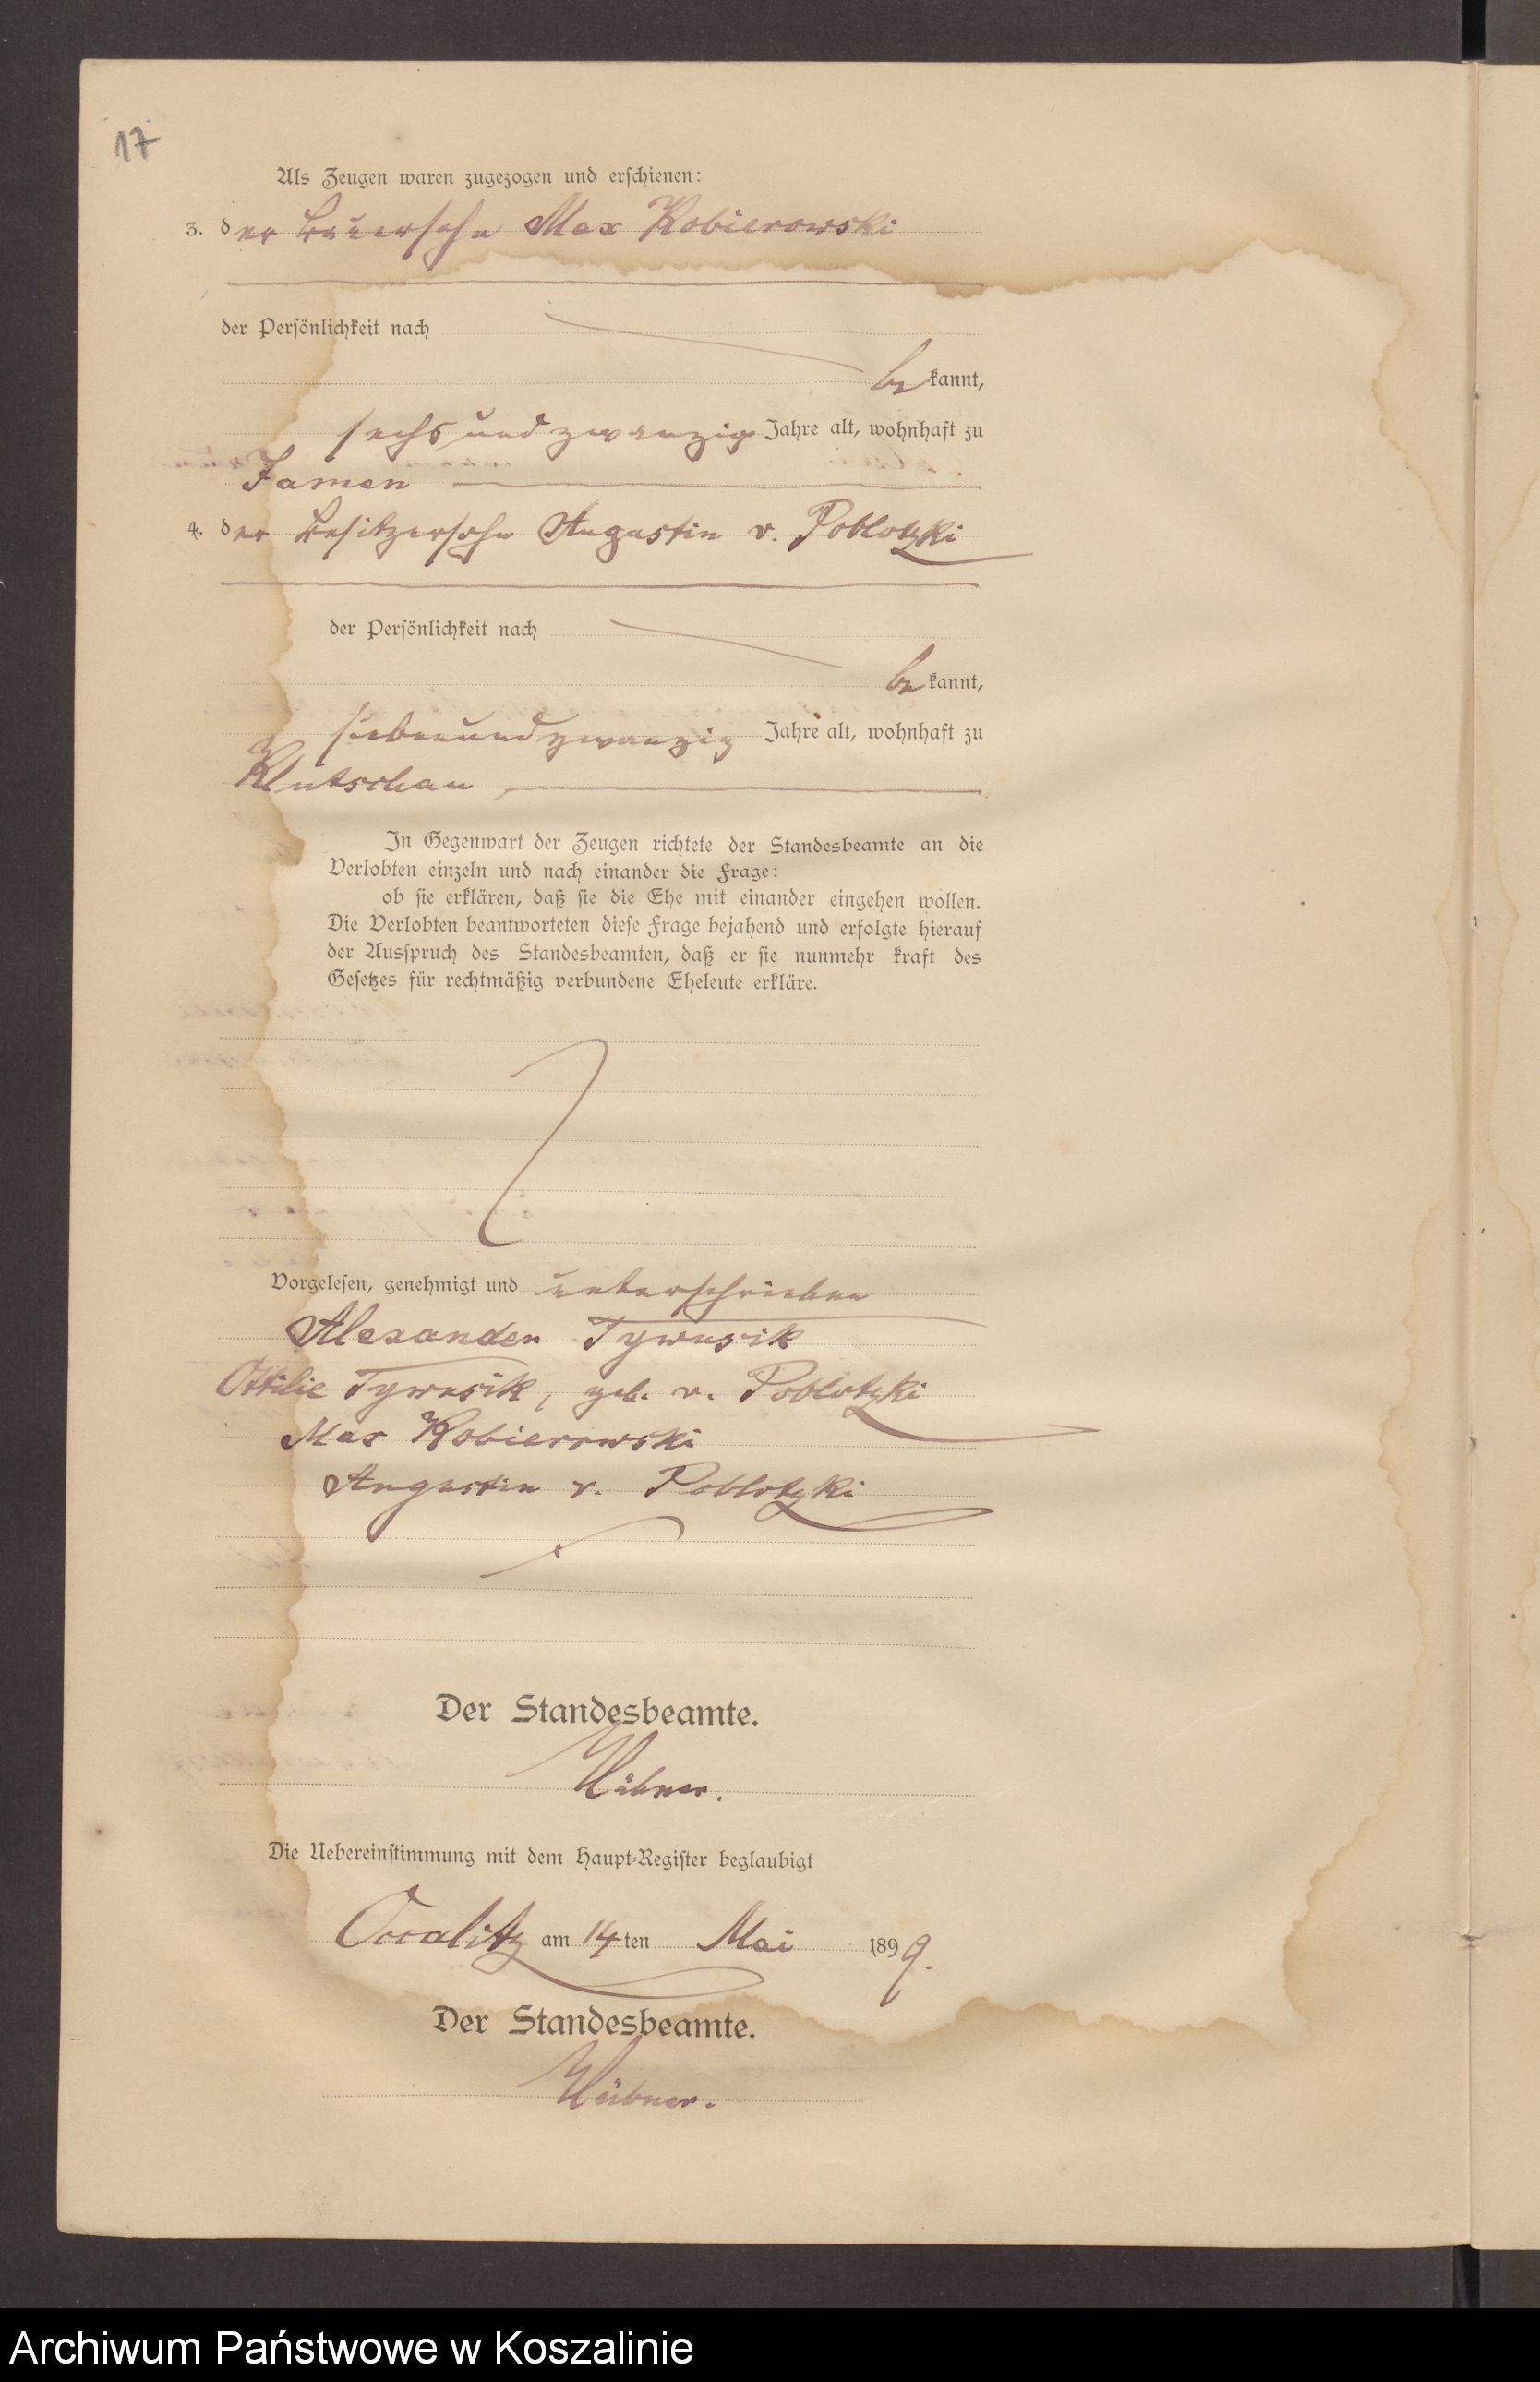 17
Als Zeugen waren zugezogen und erschienen:
3. der Bauersohn Max Kobierowski
der Persönlichkeit nach
bekannt,
sechsundzwanzig Jahre alt, wohnhaft zu
Jamen
4. der Besitzersohn Augustin v. Poblotzki
der Persönlichkeit nach
bekannt,
siebenundzwanzig Jahre alt, wohnhaft zu
Klutschau
In Gegenwart der Zeugen richtete der Standesbeamte an die
Verlobten einzeln und nach einander die Frage:
ob sie erklären, daß sie die Ehe mit einander eingehen wollen.
Die Verlobten beantworteten diese Frage bejahend und erfolgte hierauf
der Ausspruch des Standesbeamten, daß er sie nunmehr kraft des
Gesetzes für rechtmäßig verbundene Eheleute erkläre.
Vorgelesen, genehmigt und unterschrieben
Alexander Tywusik
Ottilie Tywusik, geb. v. Poblotzki
Max Kobierowski
Augustin v. Poblotzki
Der Standesbeamte.
Hübner.
Die Uebereinstimmung mit dem Haupt-Register beglaubigt
Occalitz am 14ten Mai 1899.
Der Standesbeamte.
Hübner.
Archiwum Państwowe w Koszalinie